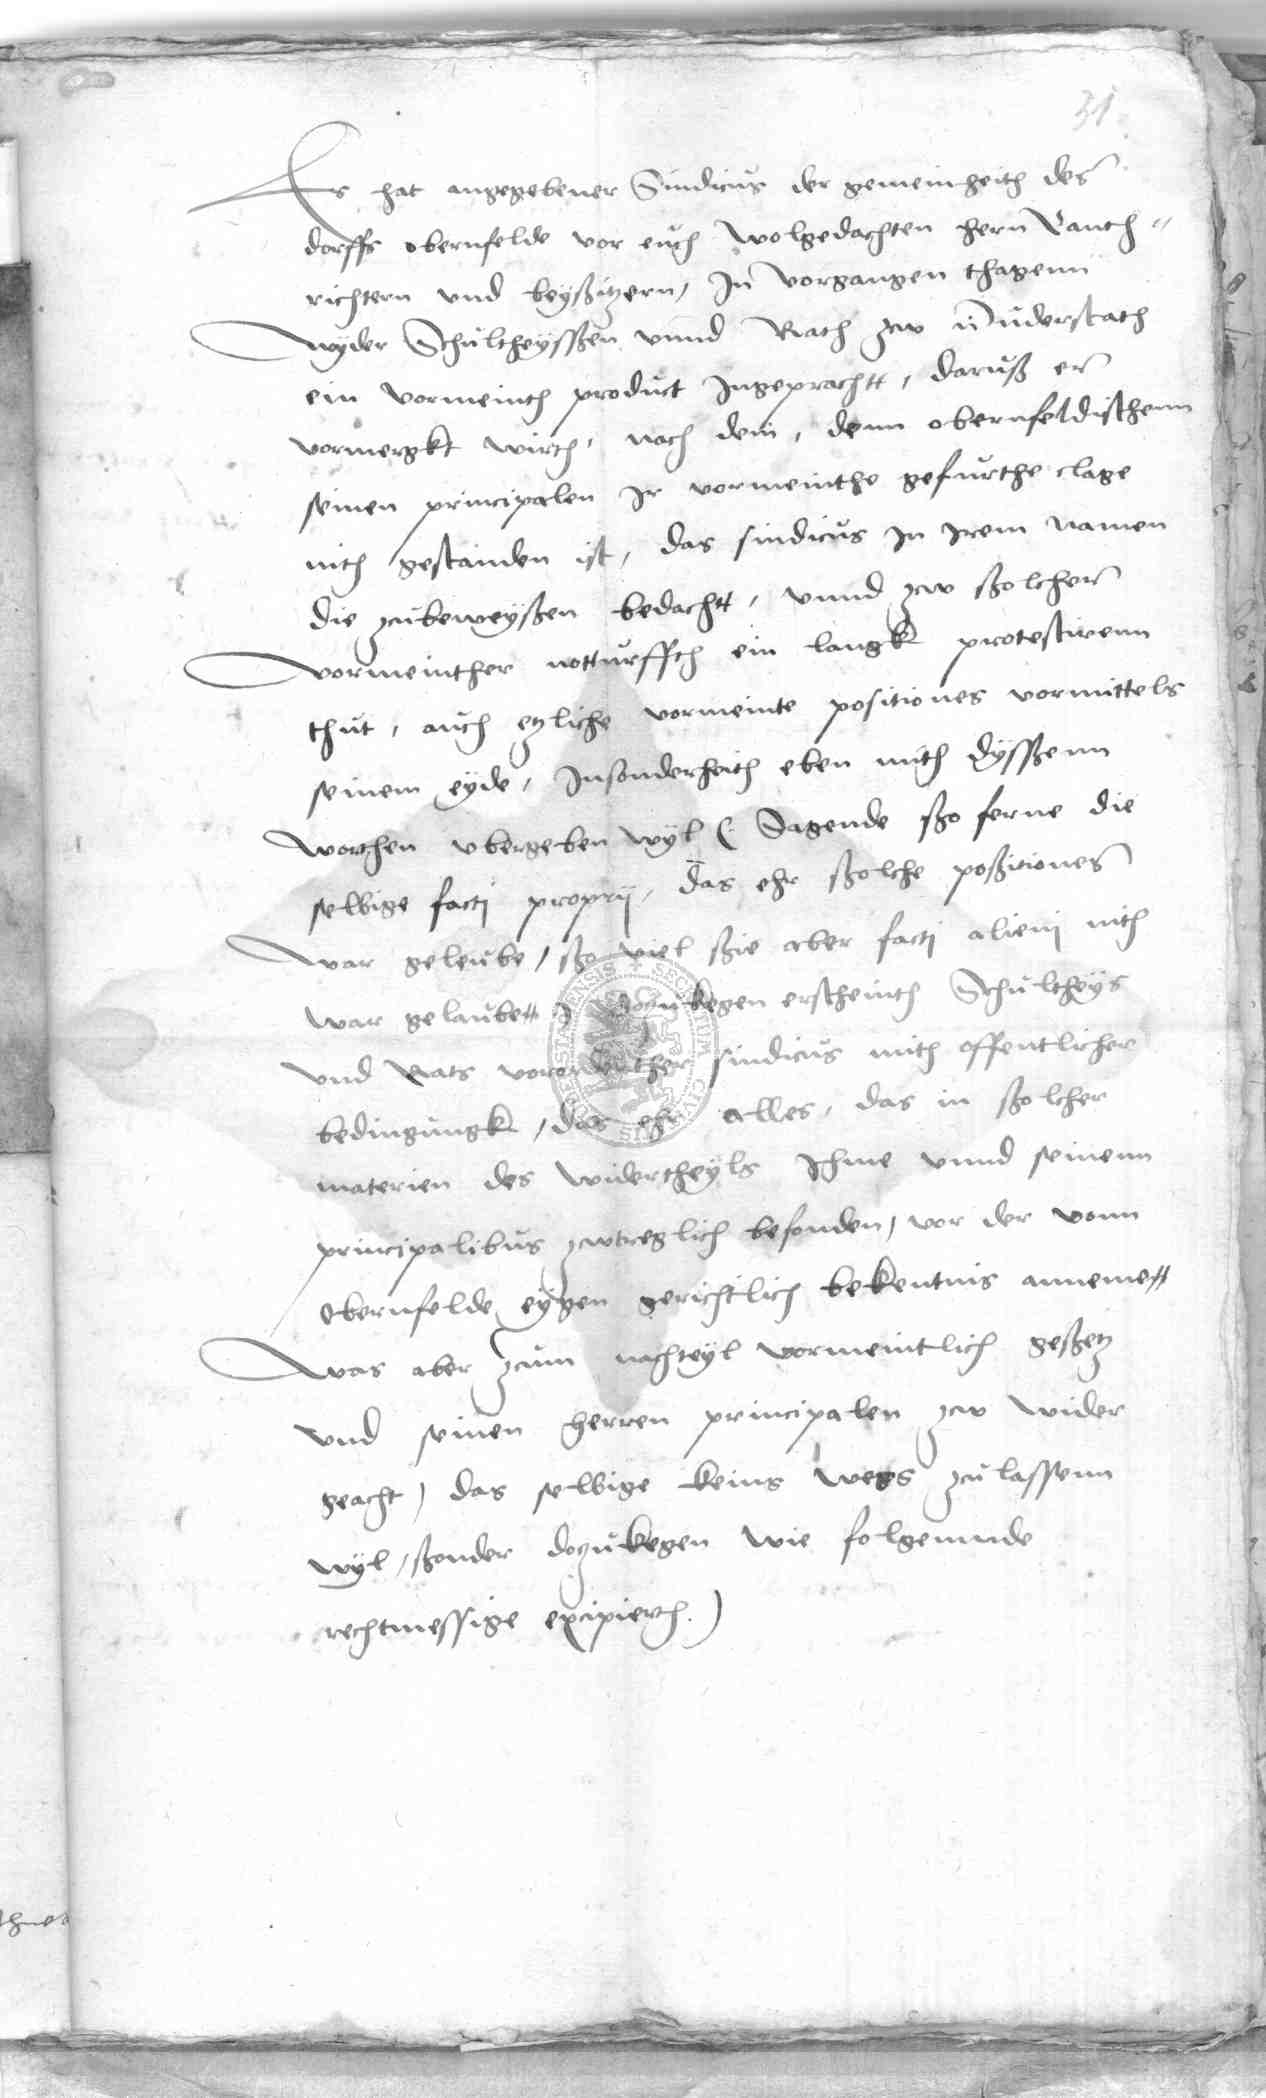 31
Es hat angegebener Sindicus der gemeinheith des
dorffs obernfelde vor euch wolgedachten hern Lanth-
richtern vnd beyßitzern, In vorgangen thagenn
wyder Schultheyssen vnnd Rath zw Duderstath
ein vormeinth product Ingeprachtt, daruß er
vormergkt wirth, nach dem, denn obernfeldischenn
seinen principalen Ir vormeinthe gefurthe clage
nith gestanden ist, das sindicus In Irem namen
die zubeweyßen bedachtt, vnnd zw ßolcher
vormeinther notturffth ein langk protestirenn
thut, auch etzliche vormeinte positiones vormittels
seinem eyde, Insonderheith eben mith dyssenn
worthen vbergeben wyl (: Sagende ßo ferne die
selbige facti proprij, das ehr ßolche poßitiones
war geleube, ßo viel ßie aber facti alieni nith
war gelaubett :) dozukegen erscheinth Schultheys
vnd Rats vorordenther sindicus mith offentlicher
bedingungk, das ehr alles, das in ßolcher
materien des widertheyls Ihme vnnd seinenn
principalibus zwtreglich befonden, vor der vonn
Obernfelde eygen gerichtlich bekentnis annemett
was aber zcum nachteyl vormeintlich geßetz
vnd seinen herren principalen zw wider
geacht, das selbige keins wegs zulassenn
wyl, ßonder dozukegen wie folgennde
rechtmessige excipierth.
SECRETUM CIVITATIS DUDERSTADENSIS